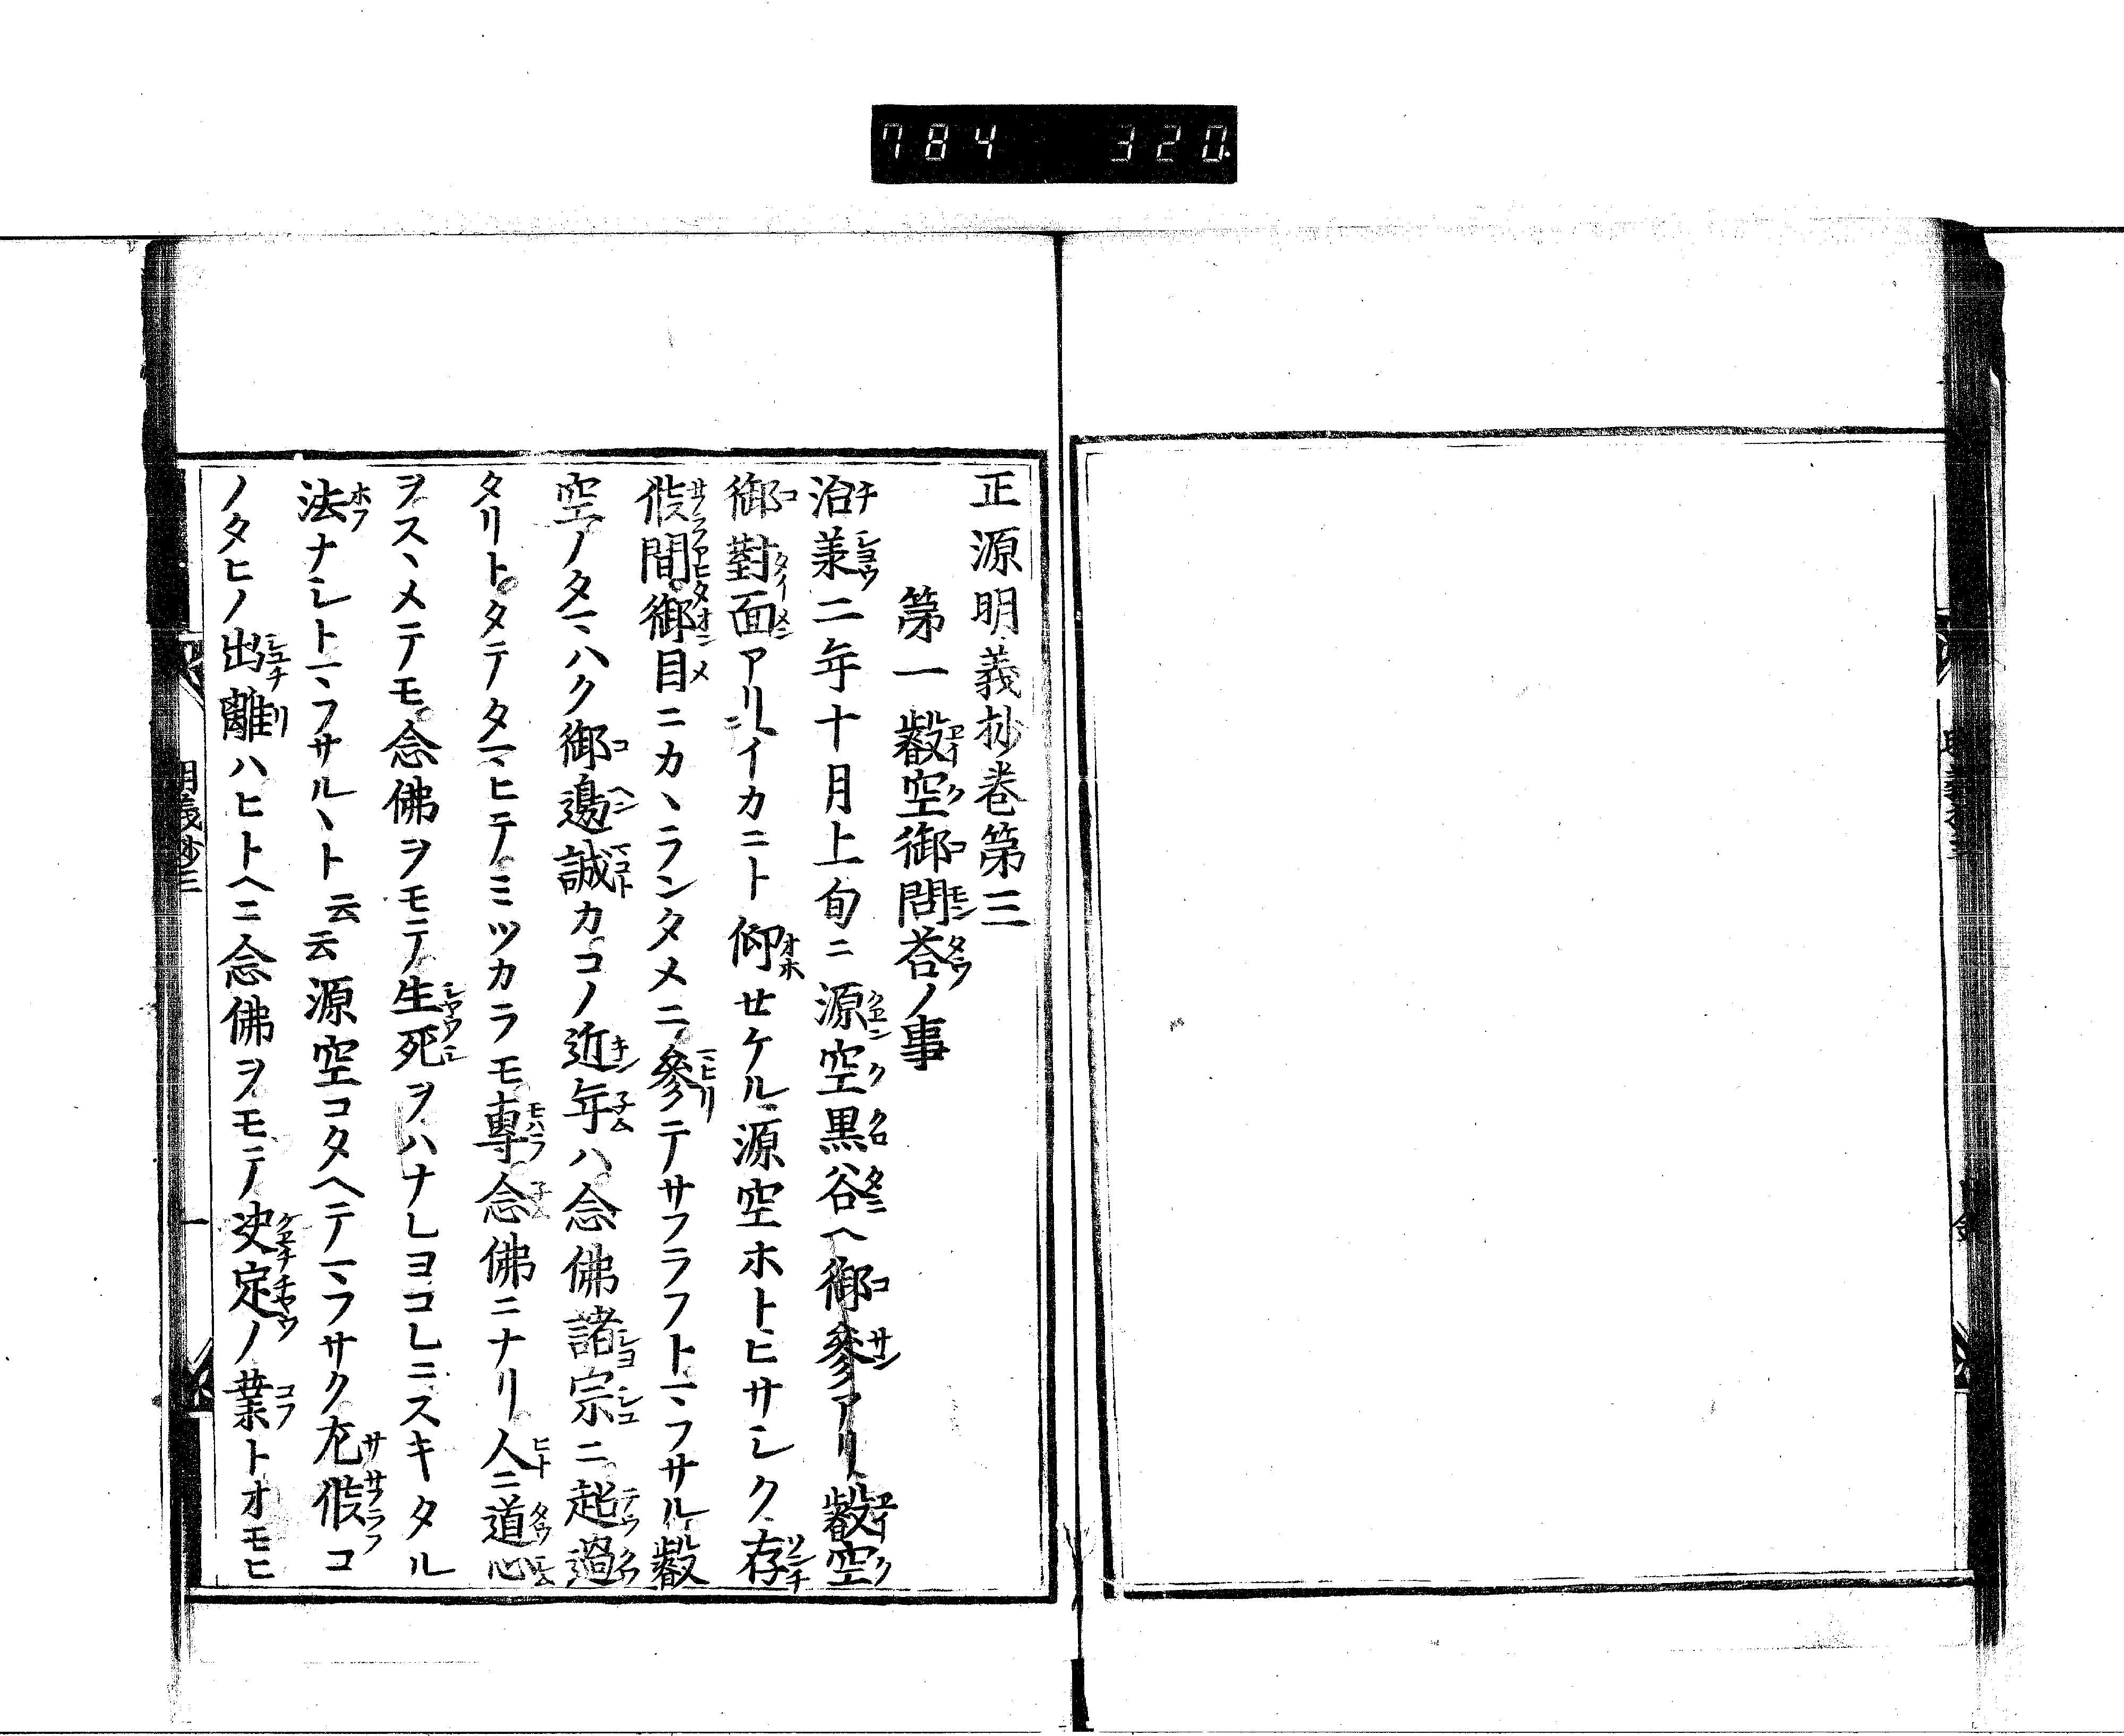 784 320
正源明義抄巻第三
第一 叡空御問荅ノ事
治美二年十月上旬ニ源空黒谷ヘ御參アリ叡空
御對面アリニイカニト仰せケル源空ホトヒサシク存
候間御目ニカヽランタメニ參テサフラフトマフサル叡
空ノタマハク御邊誠カコノ近年ハ念佛諸宗ニ超過
タリトタテタマヒテミツカラモ專念佛ニナリ人ニ道心
ヲスヽメテモ念佛ヲモテ生死ヲハナレヨコレニスキタル
法ナシトマフサルヽト云云源空コタヘテマフサク尤候コ
ノタヒノ出離ハヒトヘニ念佛ヲモテ决定ノ業トオモヒ
明義抄三 一